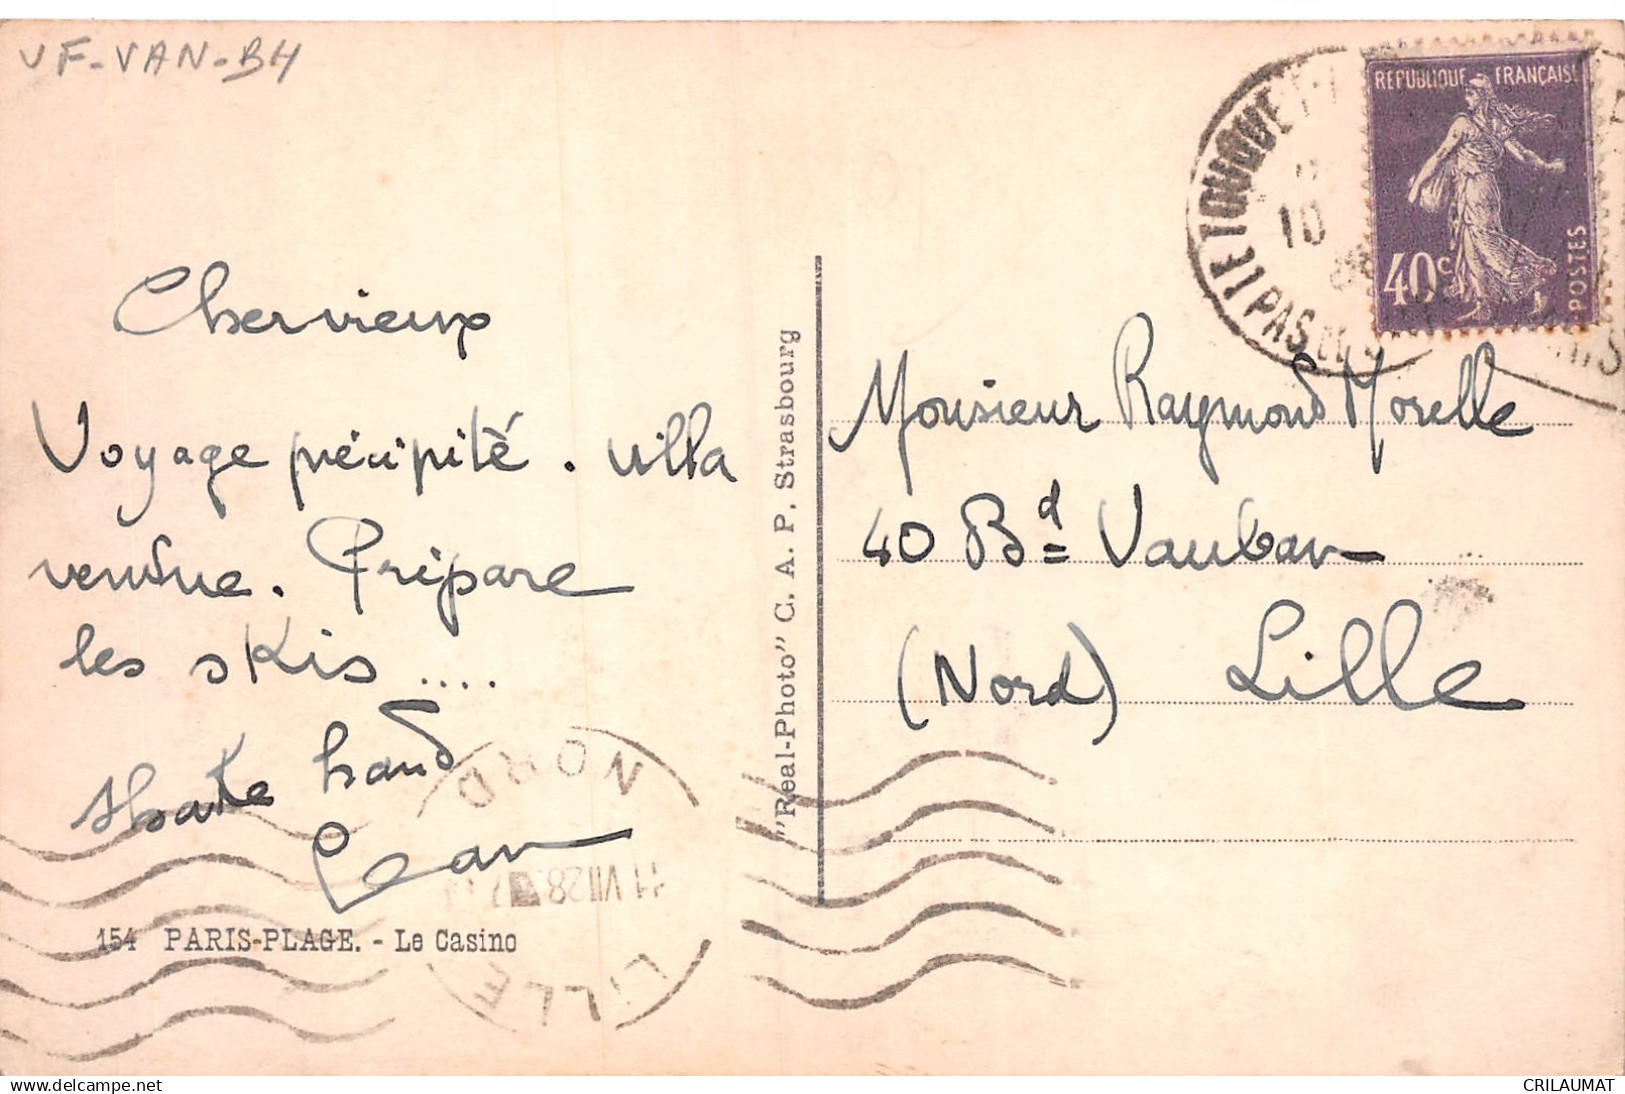 VF-VAN-B4
REPUBLIQUE FRANÇAISE
40c
POSTES
LE TOUQUET
10
PAS DE C
Cher vieux
Voyage précipité. Villa
vendue. Prépare
les skis ....
shake hand
Jean
154 PARIS-PLAGE. - Le Casino
"Real-Photo" C. A. P. Strasbourg
Monsieur Raymond Morelle
40 Bd Vauban
(Nord) Lille
NORD
11 VII 28
LILLE
CRILAUMAT